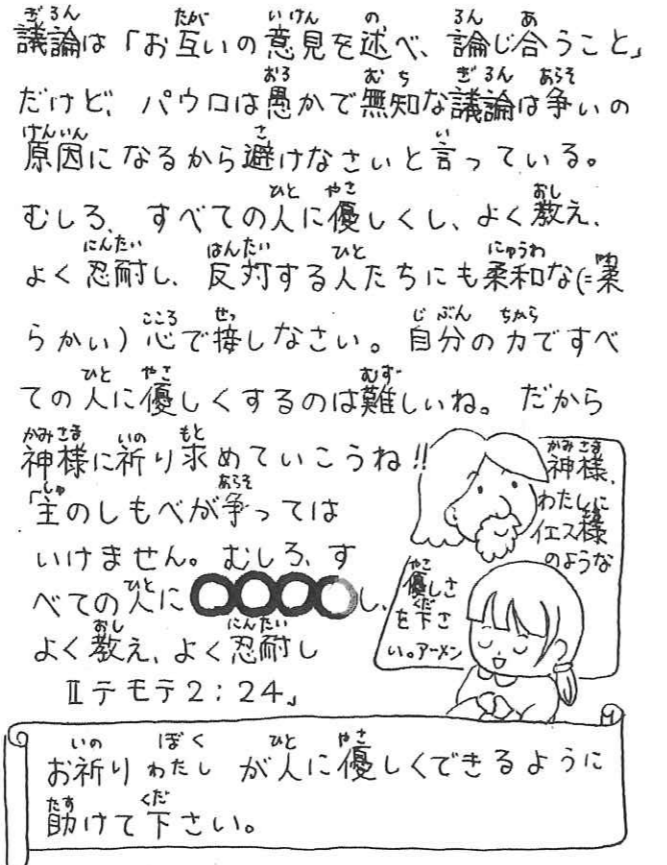 議論は「お互いの意見を述べ、論じ合うこと」
だけど、パウロは愚かで無知な議論は争いの
原因になるから避けなさいと言っている。
むしろ、すべての人に優しくし、よく教え、
よく忍耐し、反対する人たちにも柔和な(=柔
らかい)心で接しなさい。自分の力ですべ
ての人に優しくするのは難しいね。だから
神様に祈り求めていこうね!!
「主のしもべが争っては
いけません。むしろ、す
べての人に〇〇〇〇し、
よく教え、よく忍耐し
Ⅱテモテ2:24」
神様、
わたしに
イエス様
のような
優しさ
を下さ
い。アーメン
お祈り わたし ぼく が人に優しくできるように
助けて下さい。